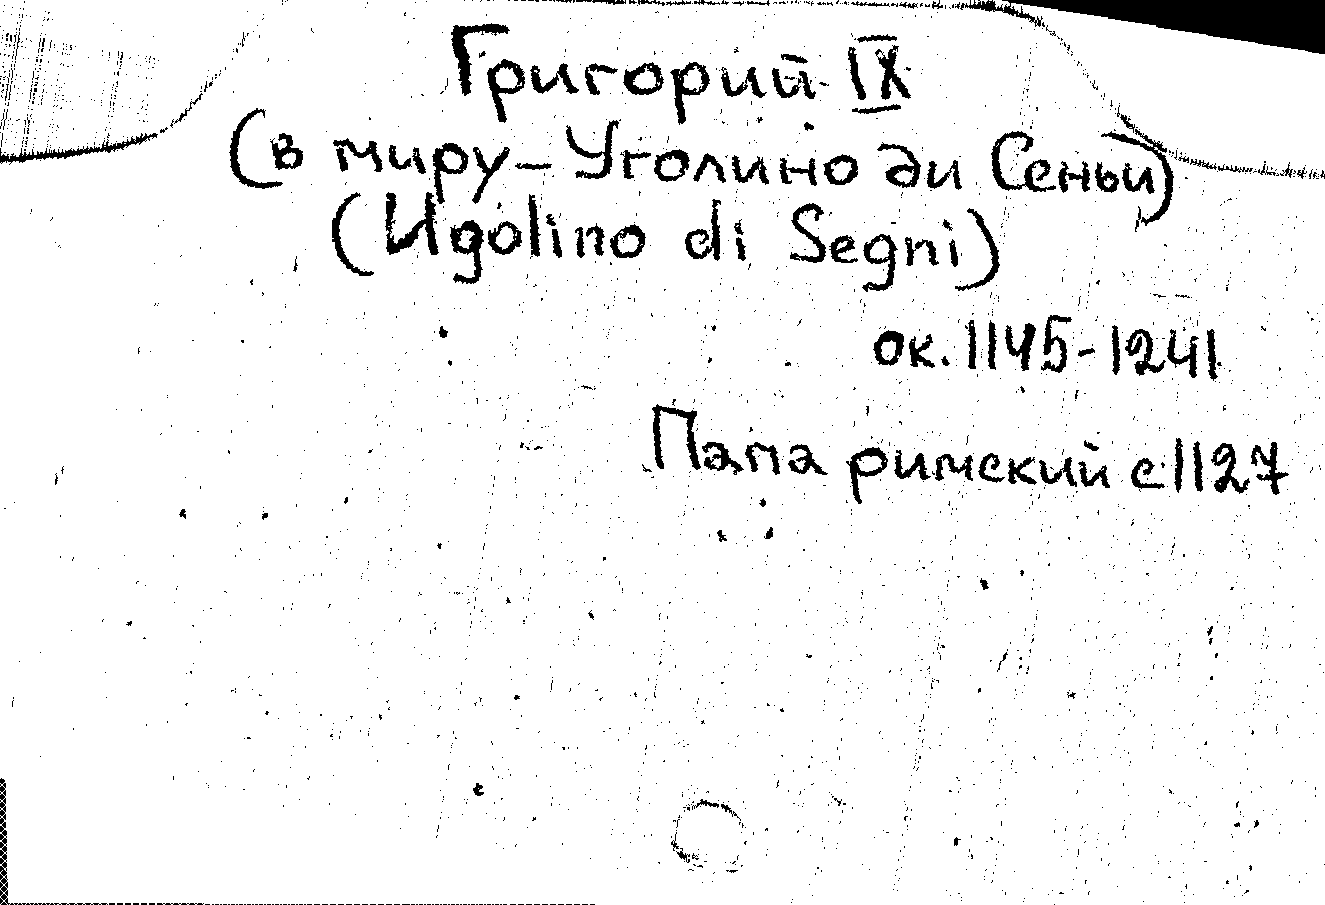 Григорий IX
(в миру – Уголино ди Сеньи)
(Ugolino di Segni)
ок. 1145-1241
Папа римский с 1127